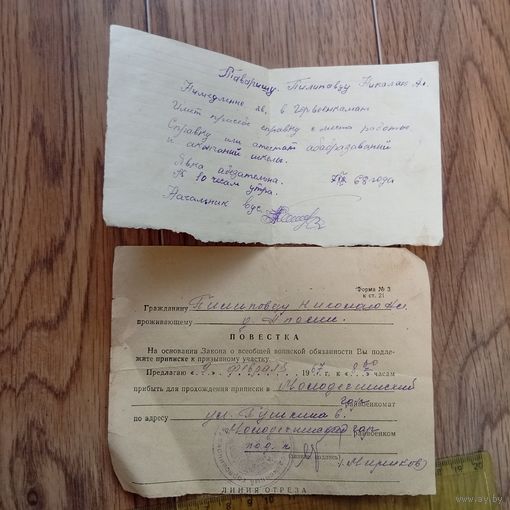 Таварищу: Пилиповцу Николаю Ал.
Немедленно яв. в Горвоенкомат
Имет присебе справку с места работы
Справку или атестат
и акычаний школы.
Явка абезательна.
К 10 часам утра. 68 года
Начальник вус.
Форма № 3
к ст. 21
Гражданину Пилиповцу Николаю Ал.
проживающему
ПОВЕСТКА
На основании Закона о всеобщей воинской обязанности Вы подле-
жите приписке к призывному участку.
Предлагаю февраля 1967 г. к часам
прибыть для прохождения приписки в Молодечненский
гор. военкомат
по адресу ул. Пушкина 6.
Молодечненский гор. военком
под. п
(подпись)
ЛИНИЯ ОТРЕЗА
www.ay.by